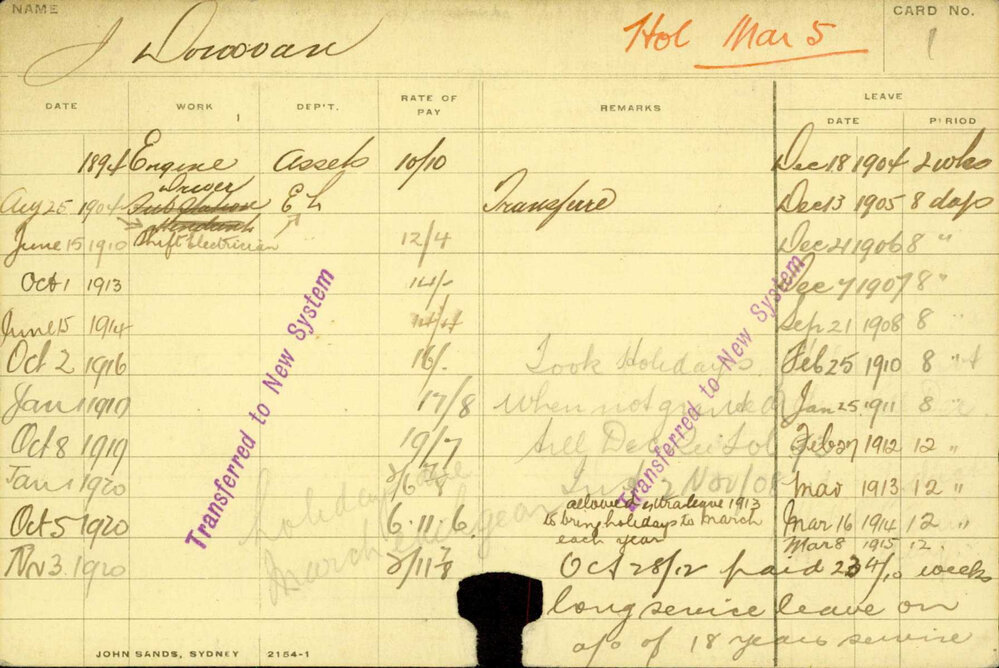 NAME
J Donovan
Hol Mar 5
CARD No.
1
DATE WORK DEP'T. RATE OF PAY REMARKS LEAVE
DATE PERIOD
1
1894 Engine Driver Assets 10/10 Dec 18 1904 2 wks
Aug 25 1904 Sub Station E L Transfure Dec 13 1905 8 days
June 15 1910 Shift Electrician 12/4 Dec 1906 8 "
Oct 1 1913 14/- Dec 7 1907 8 "
June 15 1914 Sep 21 1908 8 "
Oct 2 1916 16/- Took Holidays Feb 25 1910 8 "
Jan 1 1917 17/8 When not Jan 25 1911 8 "
Oct 8 1919 19/7 till Feb 27 1912 12 "
Jan 1 1920 Nov/08 Mar 1913 12 "
Oct 5 1920 6.11.6 allowed 1913 Mar 16 1914 12 "
to bring holidays to March
each year
Mar 8 1915 12
holidays
March each year
Nov 3 1920 Oct 28/12 paid 4/10 weeks
long service leave on
a/c of 18 years service
Transferred to New System
Transferred to New System
JOHN SANDS, SYDNEY 2154-1